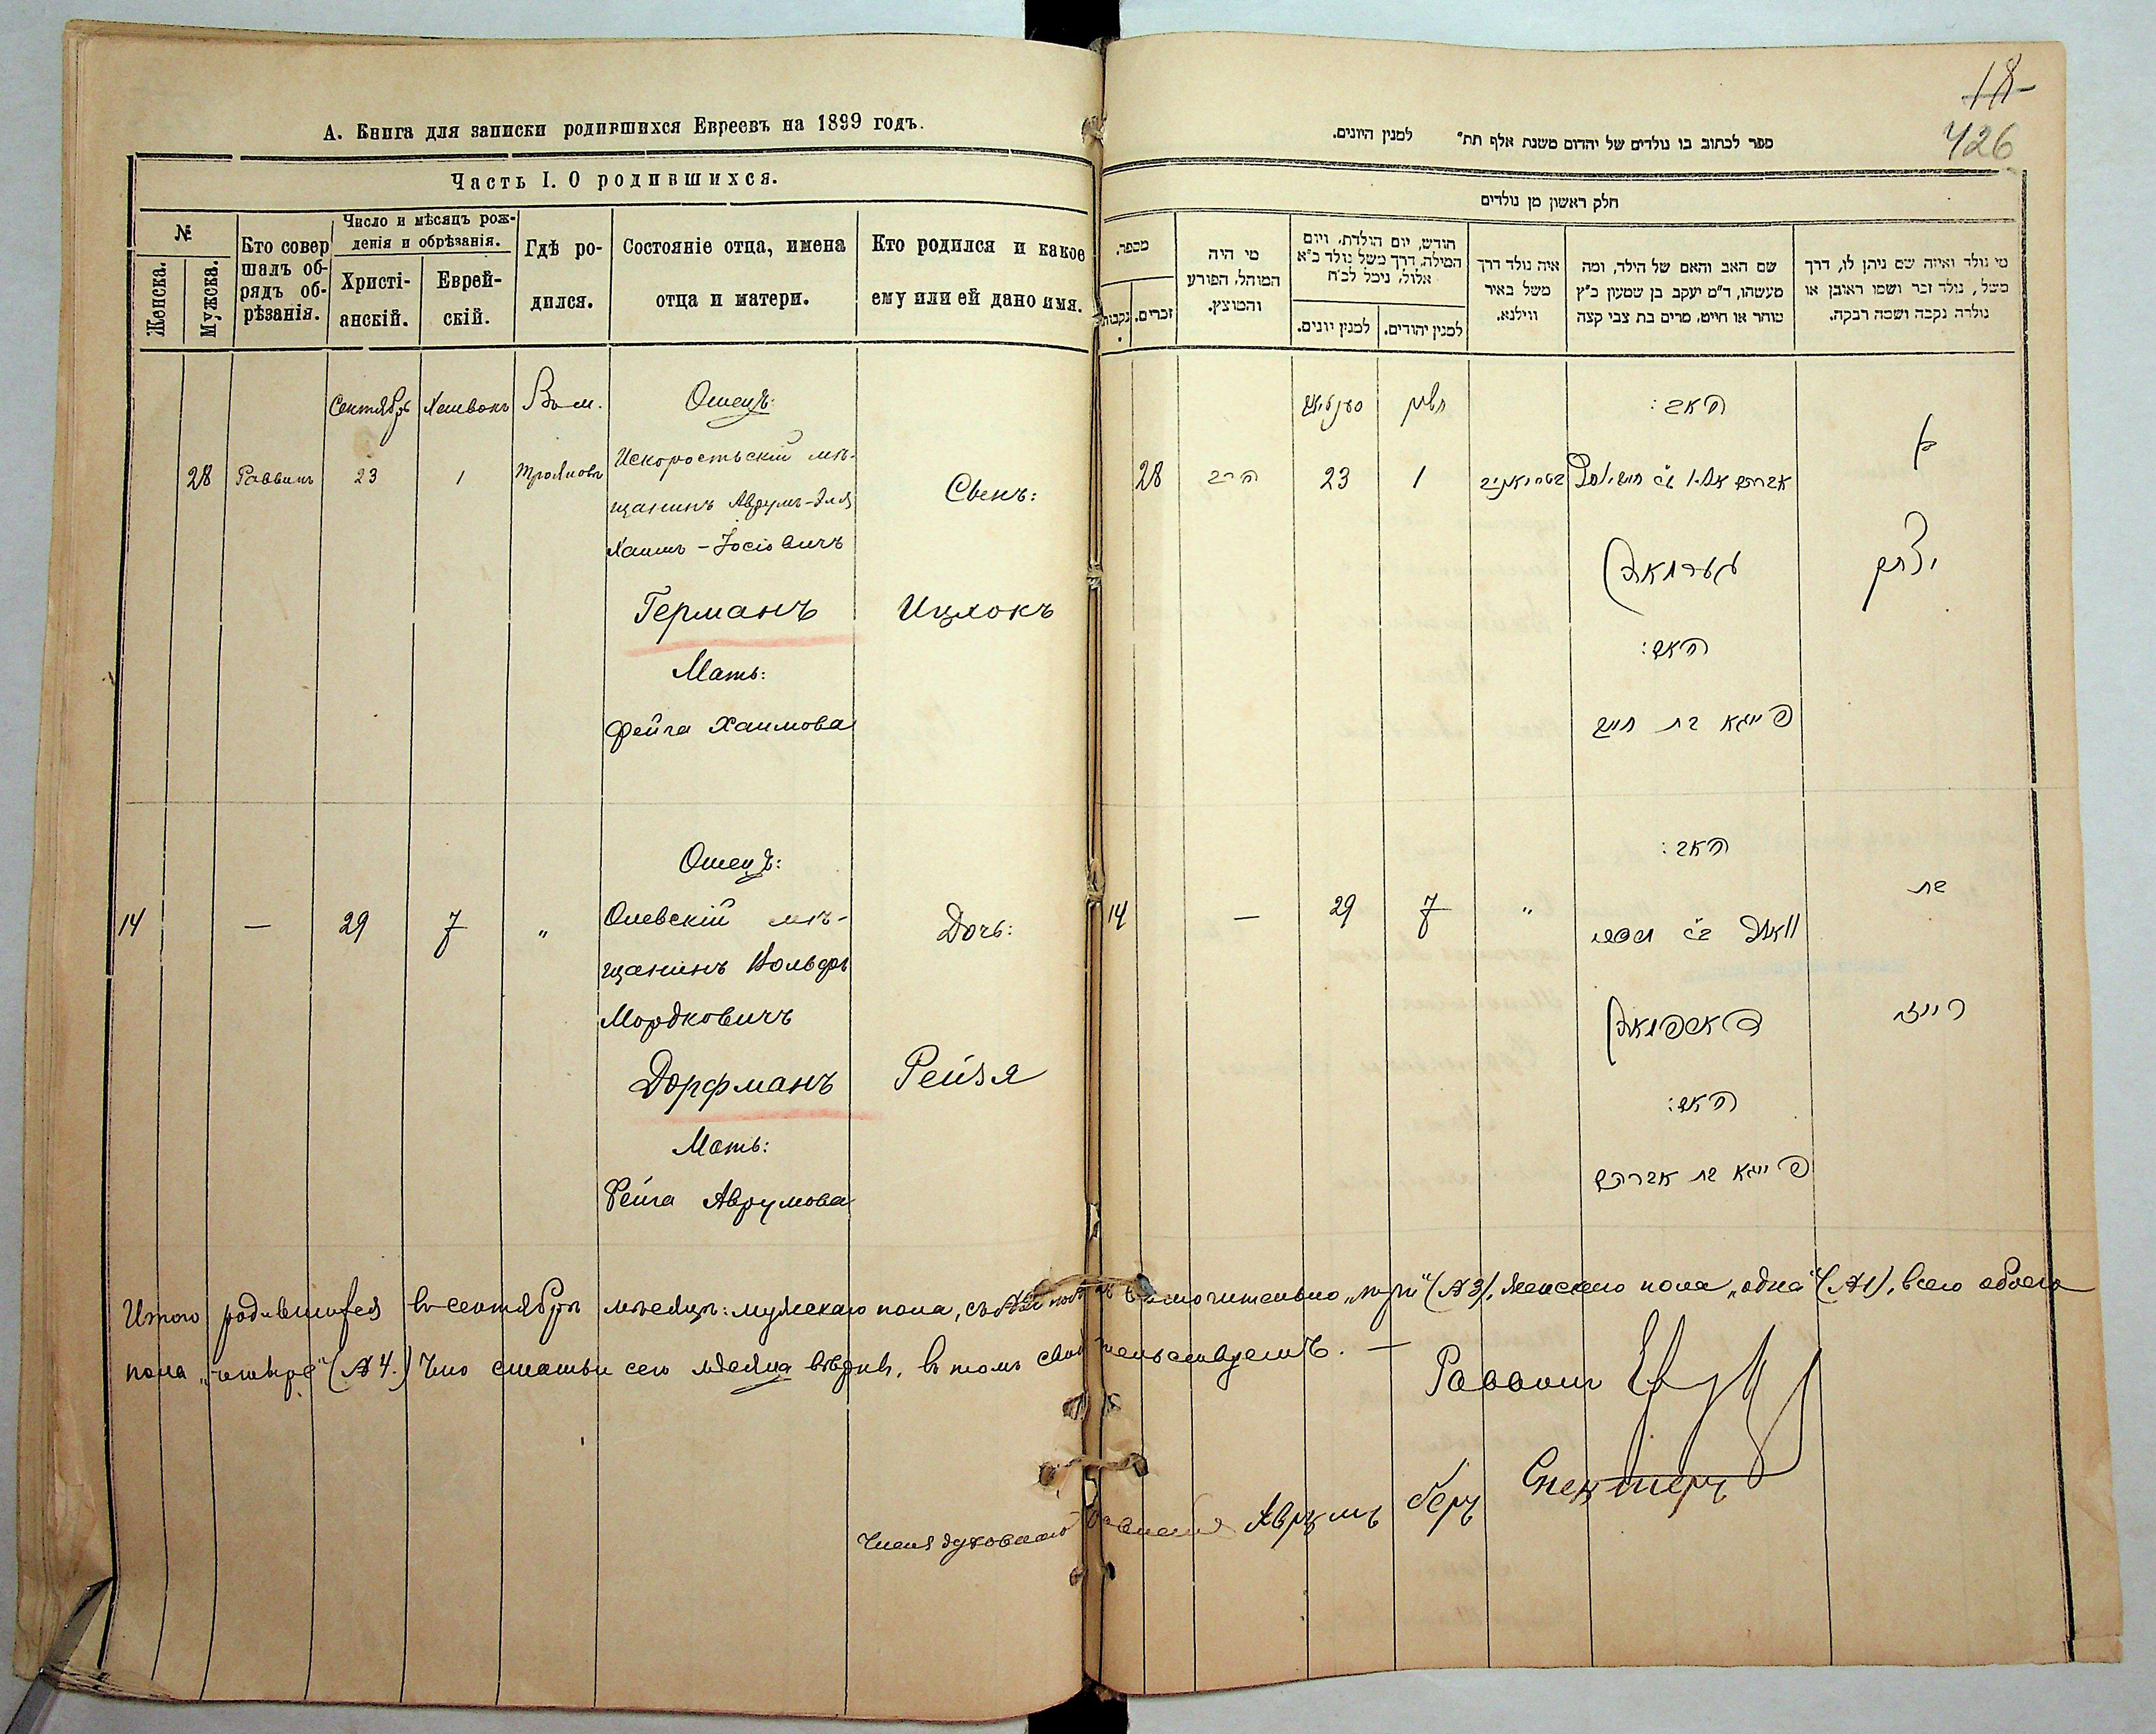 А. Книга для записки родившихся Евреевъ на 1899 годъ.
Часть I. О родившихся.
№
Женска.
Мужска.
Кто совер
шалъ об-
рядъ об-
рѣзанія.
Число и мѣсяцъ рож-
денія и обрѣзанія.
Христі-
анскій.
Еврей-
скій.
Гдѣ ро-
дился.
Состояніе отца, имена
отца и матери.
Кто родился и какое
ему или ей дано имя.
Сентябрь
Хешвонъ
Въ м.
Отецъ:
28
Раввинъ
23
1
Трояновъ
Искоростьскій мѣ-
щанинъ Аврумъ-Эля
Хаимъ-Іосіовичъ
Сынъ:
Германъ
Ицхокъ
Мать:
Фейга Хаимова
Отецъ:
14
—
29
7
"
Олевскій мѣ-
щанинъ Вольфъ
Мордковичъ
Дочь:
Дорфманъ
Рейзя
Мать:
Фейга Аврумова
18
426
ספר לכתוב בו נולדים של יהדום משנת אלף תת״ למנין היונים.
חלק ראשון מן נולדים
מספר.
נקבות.
זכרים.
מי היה
המוהל, הפורע
והמוצץ.
חודש, יום הולדת, ויום
המילה, דרך משל נולד כ״א
אלול, נימל לכ״ח
למנין יונים.
למנין יהודים.
איה נולד דרך
משל באיר
ווילנא.
שם האב והאם של הילד, ומה
מעשהו, ד״מ יעקב בן שמעון כ״ץ
סוחר או חייט, מרים בת צבי קצה
מי נולד ואיזה שם ניתן לו, דרך
משל, נולד זכר ושמו ראובן או
נולדה נקבה ושמה רבקה.
חשון
האב:
בן
28
הרב
23
1
יצחק
האם:
פייגא בת חיים
האב:
בת
14
—
29
7
"
וואלף ב״ר
דארפמאן
רייזי
האם:
פייגא בת אברהם
Итого родившихся въ сентябрѣ мѣсяцѣ: мужскаго пола, съ № включительно „три" (№ 3), женскаго пола „одна" (№ 1), всего обоего
пола „четыре" (№ 4.) Что статьи сего мѣсяца вѣрны, въ томъ свидѣтельствуемъ. —
Раввинъ
Члены духовнаго правленія Аврумъ Беръ Спекторъ